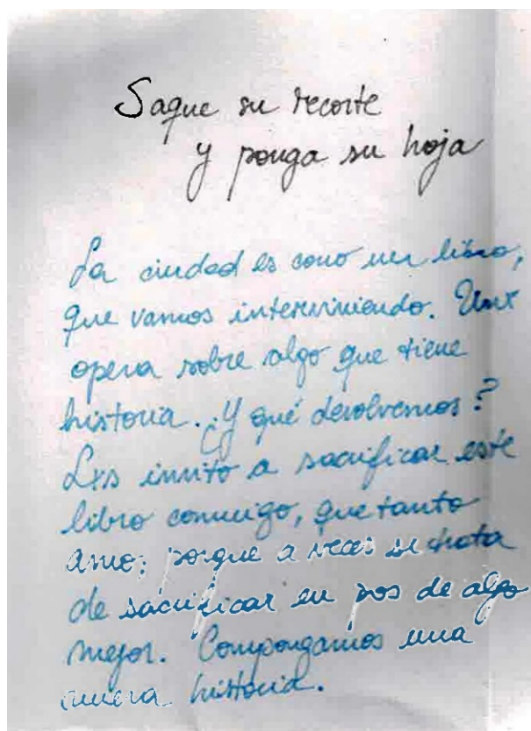 Saque su recorte
y ponga su hoja
La ciudad es como un libro,
que vamos interviniendo. Unx
opera sobre algo que tiene
historia. ¿Y qué devolvemos?
Lxs invito a sacrificar este
libro conmigo, que tanto
amo; porque a veces se trata
de sacrificar en pos de algo
mejor. Compongamos una
nueva historia.